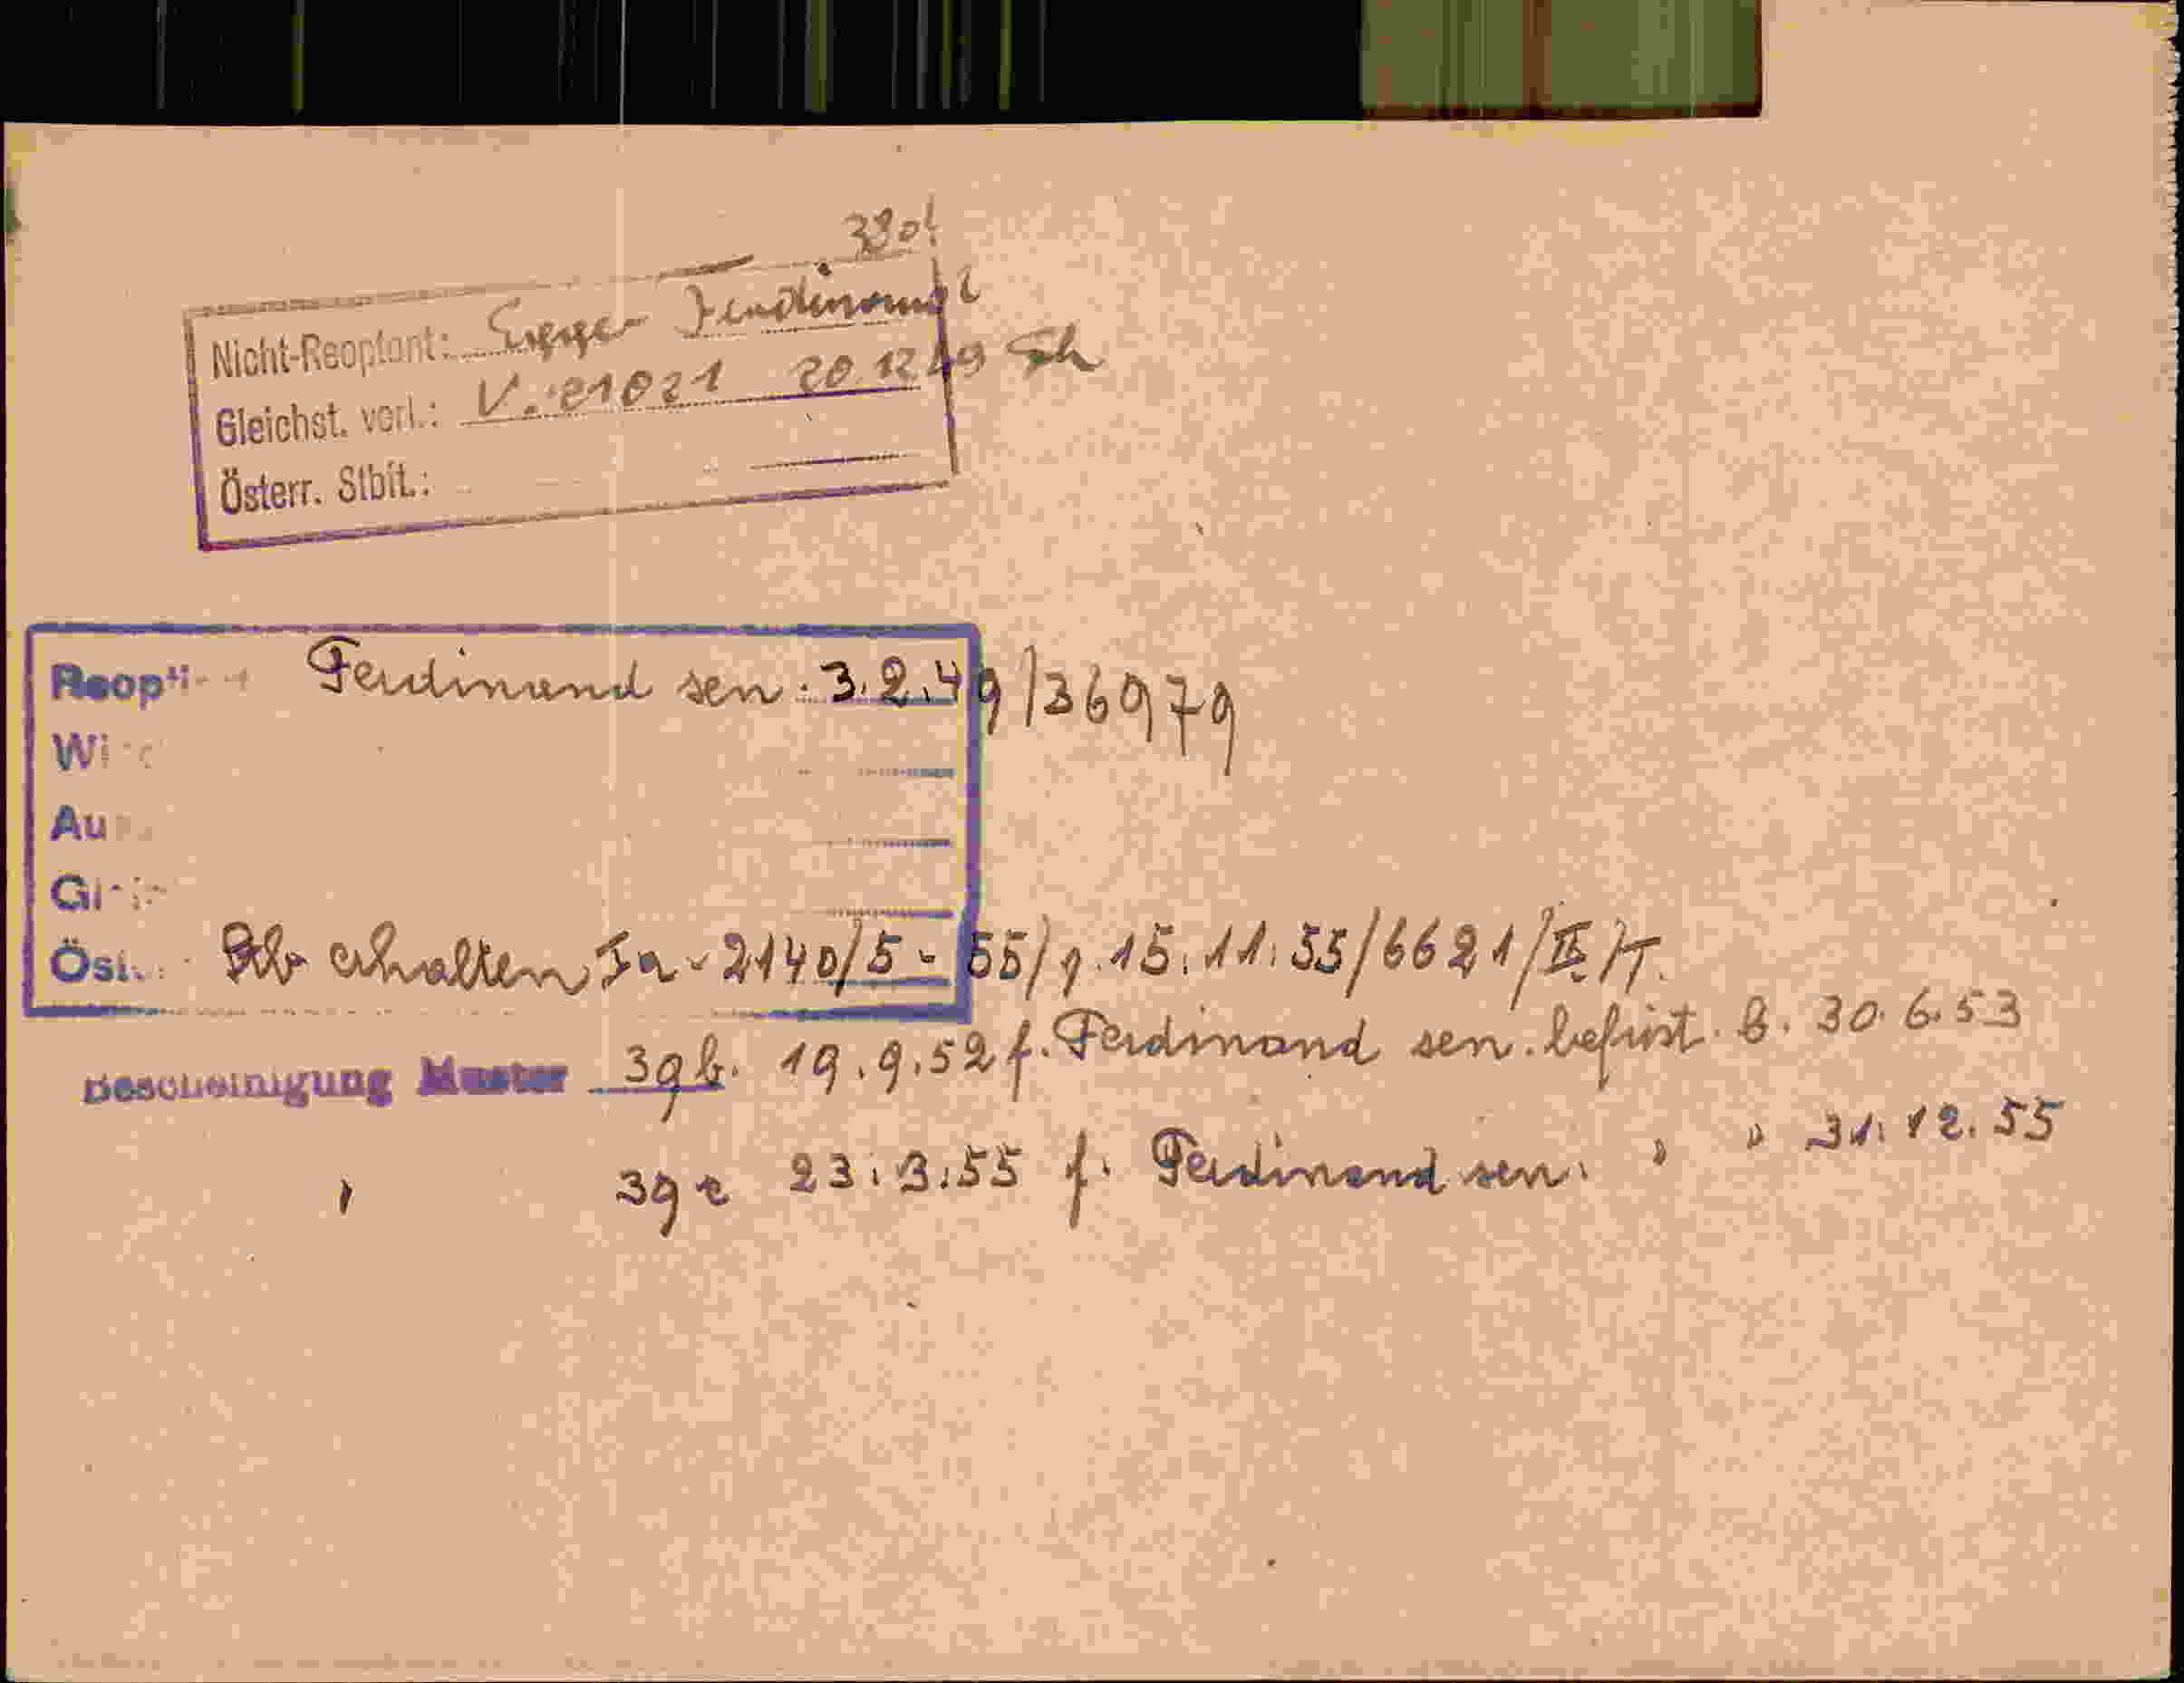 3301
Nicht-Reoptant: Egger Ferdinand
Gleichst. vorl.: V. 21021 20.12.49
Österr. Stbft.:
Reopti t Ferdinand sen. 3.2.49/36979
Wi
Au
Gl
Öst. Stb erhalten Ia-2140/5-55/1.15.11.55/6621/II/T.
Bescheinigung Muster 39b. 19.9.52 f. Ferdinand sen. befrist. b. 30.6.53
" 39c 23.3.55 f. Ferdinand sen. " " 31.12.55